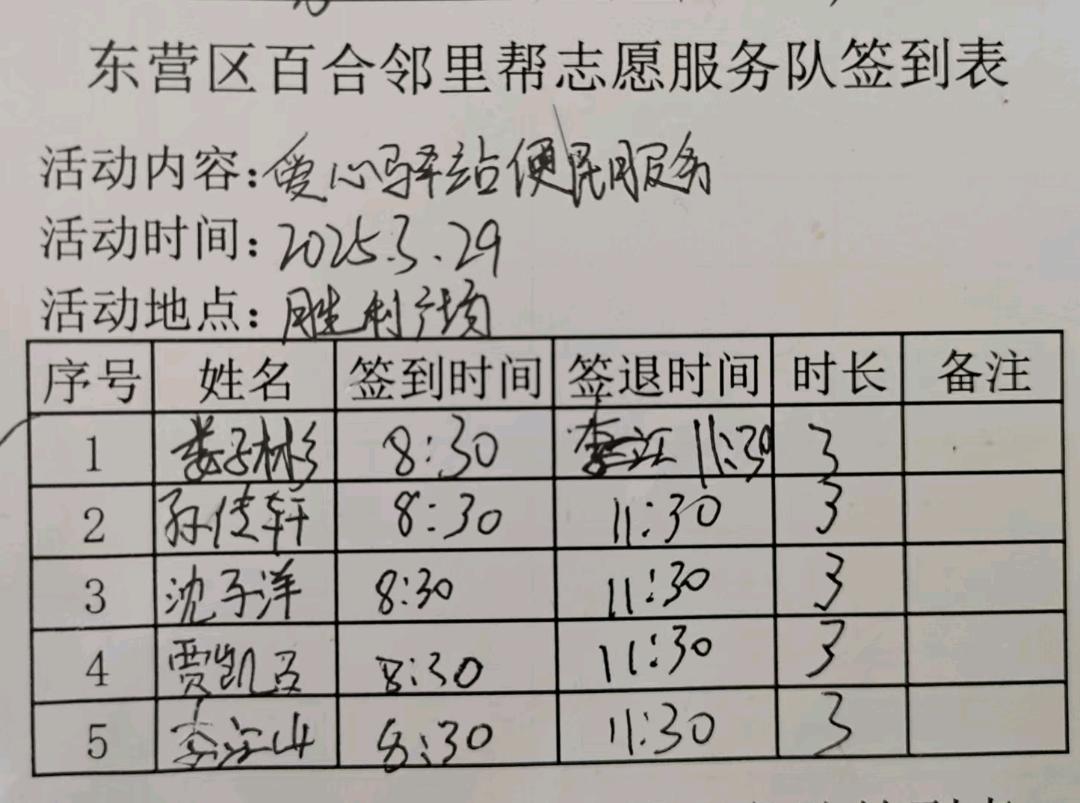 东营区百合邻里帮志愿服务队签到表
活动内容:爱心驿站便民服务
活动时间:2025.3.29
活动地点:胜利广场
序号 姓名 签到时间 签退时间 时长 备注
1 娄子彬 8:30 11:30 3
2 孙佳轩 8:30 11:30 3
3 沈子洋 8:30 11:30 3
4 贾凯 8:30 11:30 3
5 李江山 8:30 11:30 3